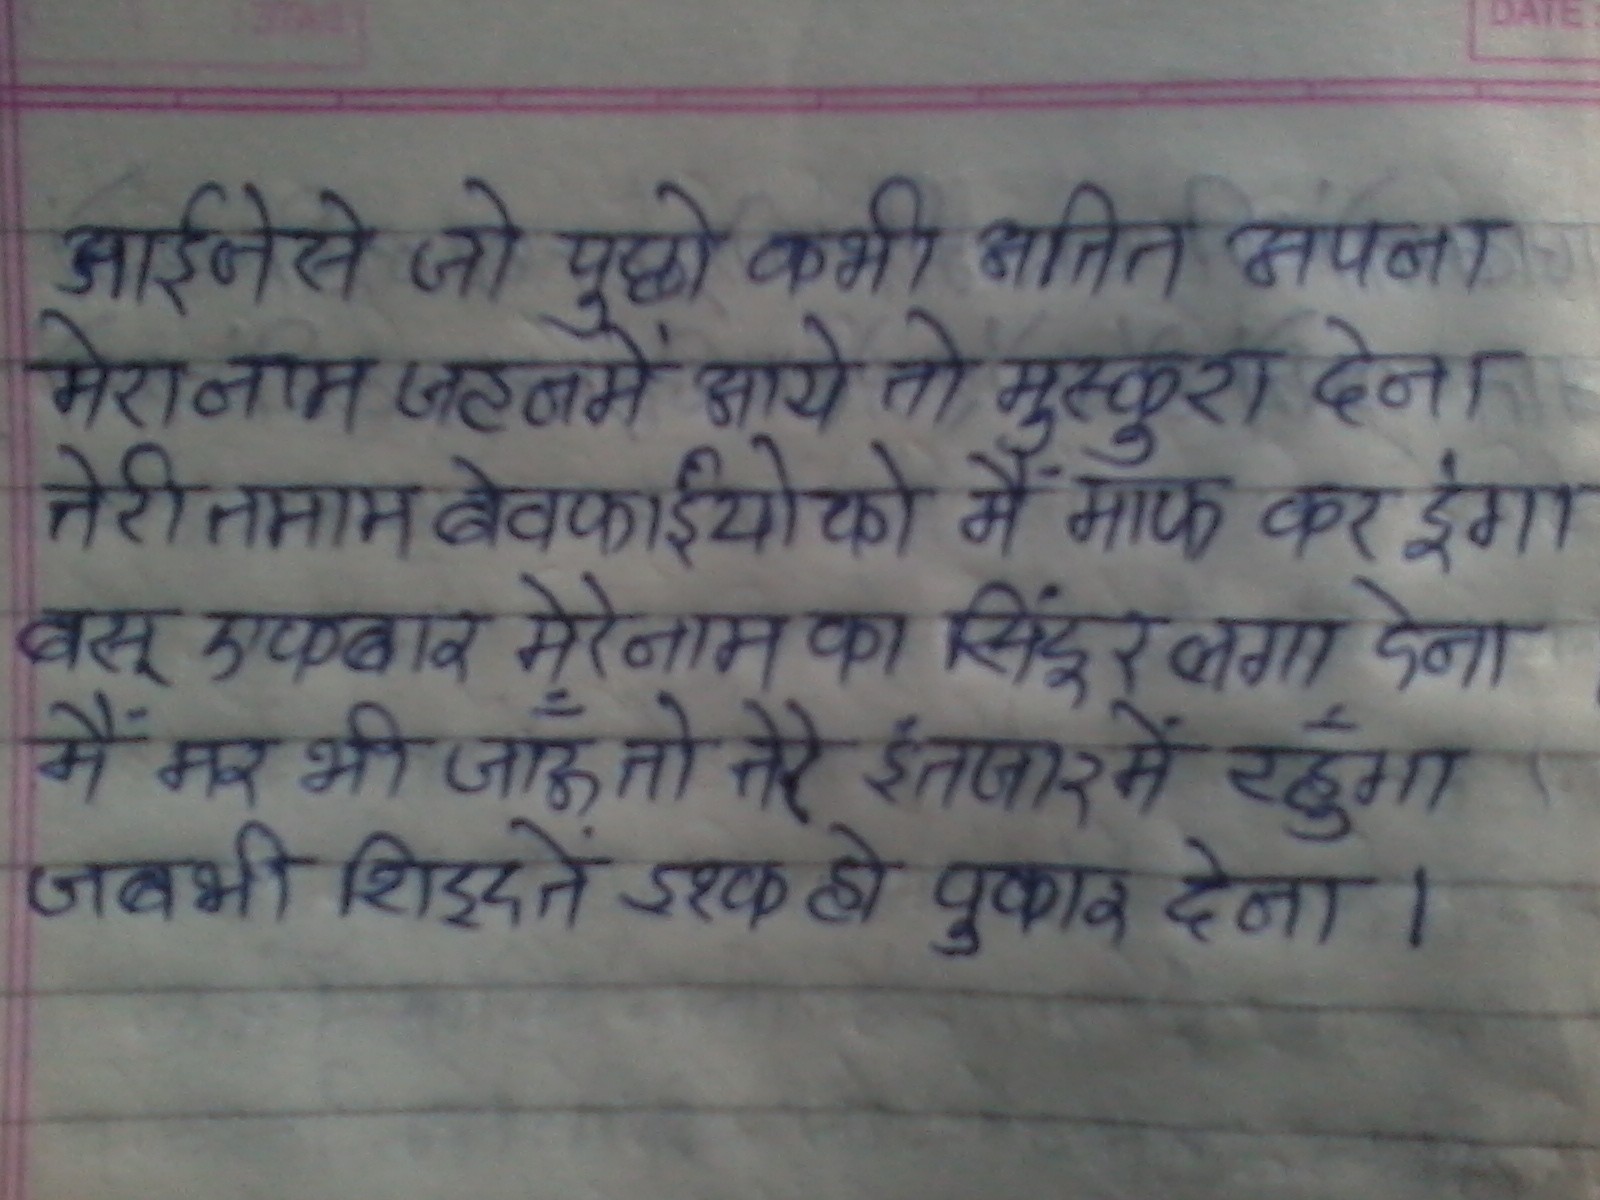 DATE
आईनेसे जो पुछो कभी अतित अपना
मेरा नाम जहनमें आये तो मुस्कुरा देना
तेरी तमाम बेवफाईयोको मैं माफ कर दुंगा
बस एकबार मेरे नाम का सिंदूर लगा देना
मैं मर भी जाऊँ तो तेरे इंतजार में रहुँगा
जब भी शिद्दतें इश्क हो पुकार देना ।